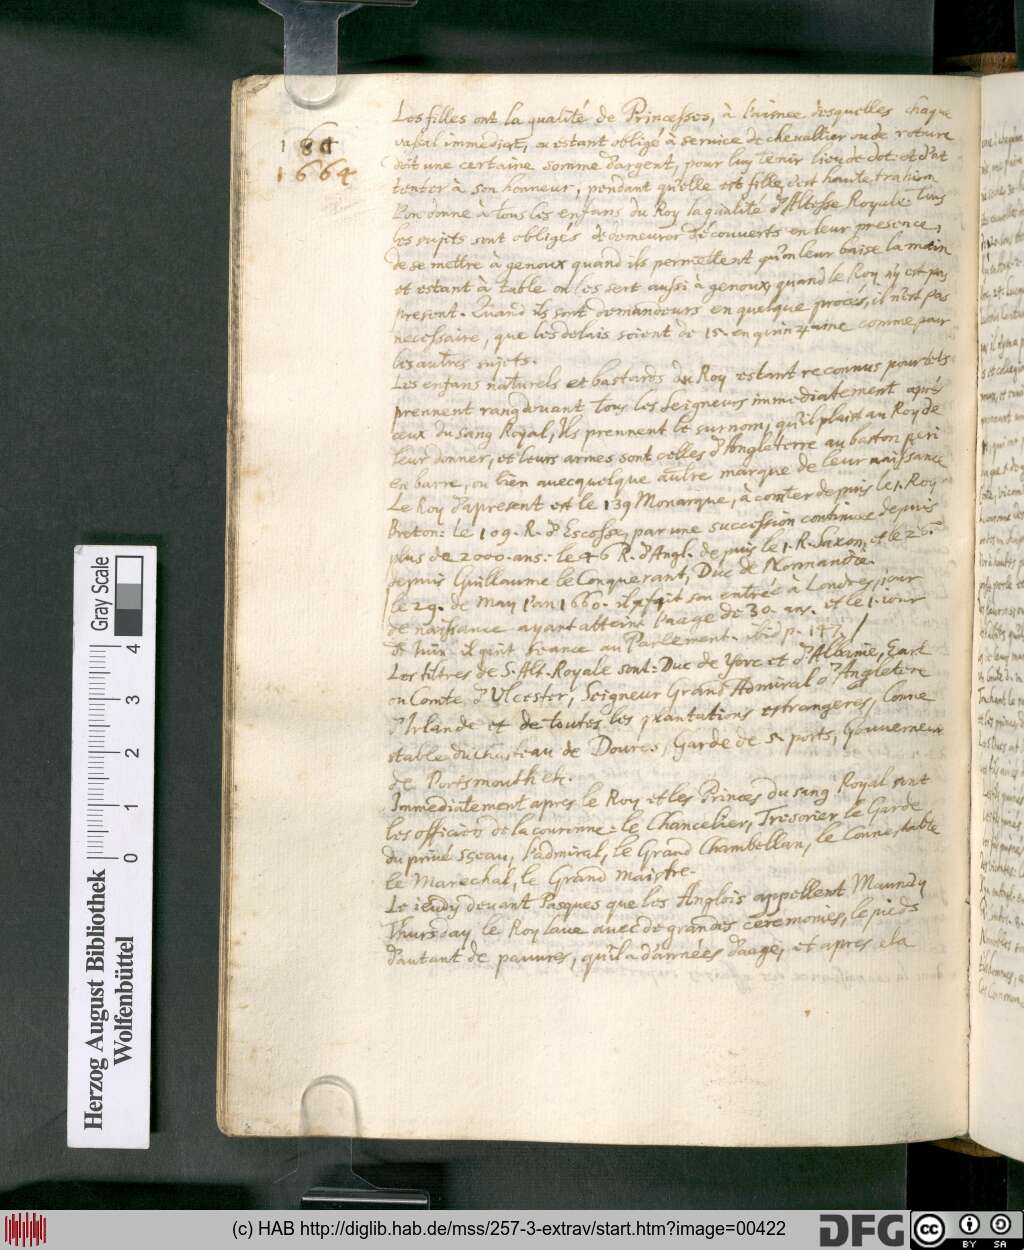 184
1664
Les filles ont la qualité de Princesses, à l'aisnee desquelles châque
vassal immediat, ou estant obligé à service de chevallier ou de roture
doit une certaine somme d'argent, pour luy tenir lieu de dot. et d'at
tenter à son honneur, pendant qu'elle est fille, c'est haute trahison
L'on donne à tous les enfans du Roy la qualité d'Altesse Royale. Tous
les sujets sont obligés de demeurer découverts en leur presence,
de se mettre à genoux quand ils permettent qu'on leur baise la main
et estant à table on les sert aussi à genoux, quand le Roy n'y est pas
present. Quand ils sont demandeurs en quelque procés, il n'est pas
necessaire, que les delais soient de 15. en quinzaine comme pour
les autres sujets.
Les enfans naturels et bastards du Roy estant reconnus pour tels
prennent rang devant tous les Seigneurs immediatement aprés
ceux du sang Royal, Ils prennent le surnom, qu'il plaist au Roy de
leur donner, et leurs armes sont celles d'Angleterre au baston peri
en barre, ou bien avecquelque autre marque de leur naissance
Le Roy d'apresent est le 139 Monarque, à conter depuis le 1. Roy
Breton: Le 109. R. d'Escosse, par une succession continuee depuis
plus de 2000. ans: le 46 R. d'Angl. depuis le 1. R. Saxon, et le 26.
depuis Guillaume le Conquerant, Duc de Normandie.
le 29. de May l'an 1660. il fit son entrée à Londres, jour
de naissance ayant atteint l'aage de 30. ans. et le 1. jour
de Juin il prit seance au Parlement. ibid p. 147.
Les tiltres de S. Alt. Royale sont: Duc de Yorc et d'Albanie, Earl
ou Comte d'Ulcester, Seigneur Grand Admiral d'Angletere
d'Irlande et de toutes les plantations estrangeres, Conne
stable du Chasteau de Douvres, Garde de 5 ports, Gouverneur
de Portsmouth etc.
Immediatement apres le Roy et les Princes du sang Royal sont
les officiers de la couronne: le Chancelier, Tresorier le Garde
du privé sçeau, l'admiral, le Grand Chambellan, le Connestable
le Marechal, le Grand Maistre.
Le ieudy devant Pasques que les Anglois appellent Maundy
Thursday le Roy lave avec de grandes ceremonies, le pieds
d'autant de pauvres, qu'il a d'années d'aage, et apres ela
Herzog August Bibliothek
Wolfenbüttel
Gray Scale
0 1 2 3 4
(c) HAB http://diglib.hab.de/mss/257-3-extrav/start.htm?image=00422
DFG
cc BY SA